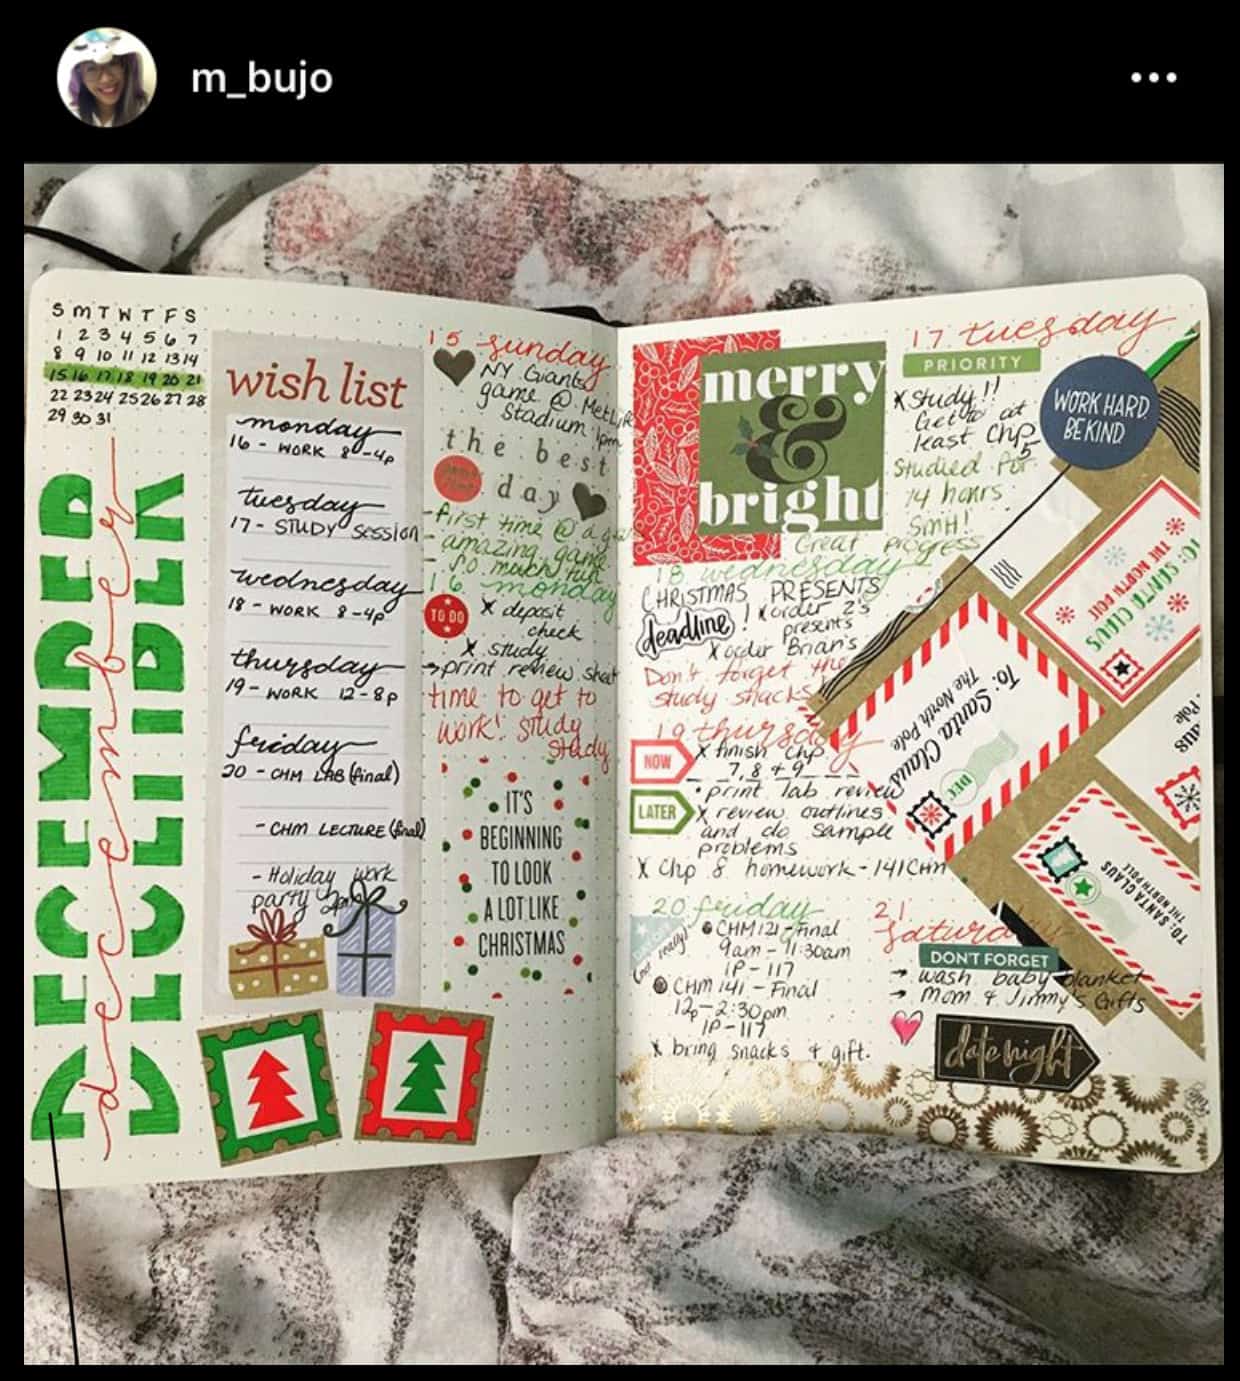 m_bujo
S M T W T F S
1 2 3 4 5 6 7
8 9 10 11 12 13 14
15 16 17 18 19 20 21
22 23 24 25 26 27 28
29 30 31
DECEMBER
december
wish list
monday
16 - WORK 8-4p
tuesday
17 - STUDY Session
wednesday
18 - WORK 8-4p
thursday
19 - WORK 12-8p
friday
20 - CHM LAB (final)
- CHM LECTURE (final)
- Holiday work
party 2pm
15 sunday
NY Giants
game @ MetLife
Stadium 1pm
the best
day
- first time @ a game
- amazing game
- so much fun
16 monday
TO DO
x deposit
check
x study
→ print review sheet
time to get to
work! study
study
IT'S
BEGINNING
TO LOOK
A LOT LIKE
CHRISTMAS
merry
&
bright
17 tuesday
PRIORITY
x study!!
Get to at
least chp
5
Studied for
14 hours
Smh!
Great progress
WORK HARD.
BE KIND.
18 wednesday
CHRISTMAS PRESENTS
deadline! x order 2's
presents
x order Brian's
Don't forget the
study snacks
19 thursday
NOW
x finish chp
7, 8 & 9
• print lab review
LATER
x review outlines
and do sample
problems
x Chp 8 homework - 141 CHM
20 friday
DAY OFF
(not really)
• CHM 121 - Final
9am - 11:30am
IP-117
• CHM 141 - Final
12p - 2:30pm
IP-117
x bring snacks & gift.
21
saturday
DON'T FORGET
→ wash baby blanket
→ mom & Jimmy's Gifts
date night
TO: SANTA CLAUS
THE NORTH POLE
To: Santa Claus
The North Pole
DEC
aus
Pole
TO:
SANTA CLAUS
THE NORTH POLE